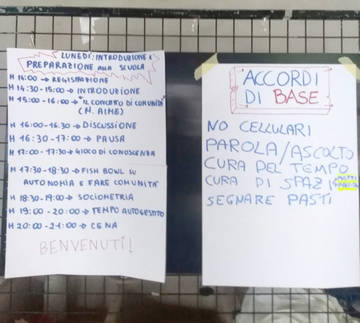 LUNEDÌ: INTRODUZIONE E
PREPARAZIONE ALLA SCUOLA
H 14:00 → REGISTRAZIONE
H 14:30-15:00 → INTRODUZIONE
H 15:00-16:00 → "IL CONCETTO DI COMUNITÀ"
H 16:00-16:30 → DISCUSSIONE
H 16:30-17:00 → PAUSA
H 17:00-17:30 → GIOCO DI CONOSCENZA
H 17:30-18:30 → FISH BOWL SU
AUTONOMIA E FARE COMUNITÀ
H 18:30-19:00 → SOCIOMETRIA
H 19:00-20:00 → TEMPO AUTOGESTITO
H 20:00-21:00 → CENA
BENVENUTI!
ACCORDI
DI BASE
NO CELLULARI
PAROLA/ASCOLTO
CURA DEL TEMPO
CURA DI SPAZI
SEGNARE PASTI